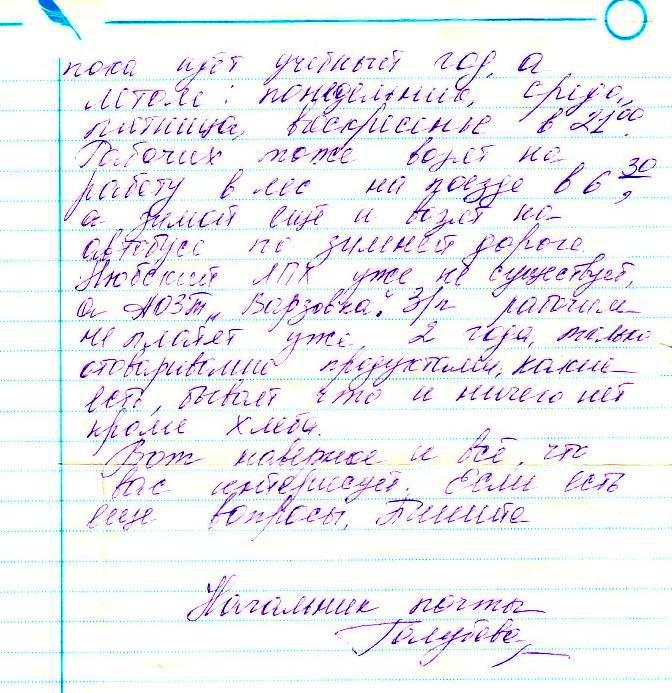 пока идёт учебный год, а
летом: понедельник, среда,
пятница, воскресенье в 21⁰⁰.
Рабочих тоже возят на
работу в лес на поезде в 6 30,
а зимой ещё и возят на
автобусе по зимней дороге.
Нюбский ЛПХ уже не существует,
а АОЗТ „Варзовка". З/п рабочим
не платят уже 2 года, только
отоваривали продуктами, какие
есть, бывает что и ничего нет
кроме хлеба.
Вот наверное и всё, что
вас интерисует. Если есть
еще вопросы, Пишите
Начальник почты
Голубова,